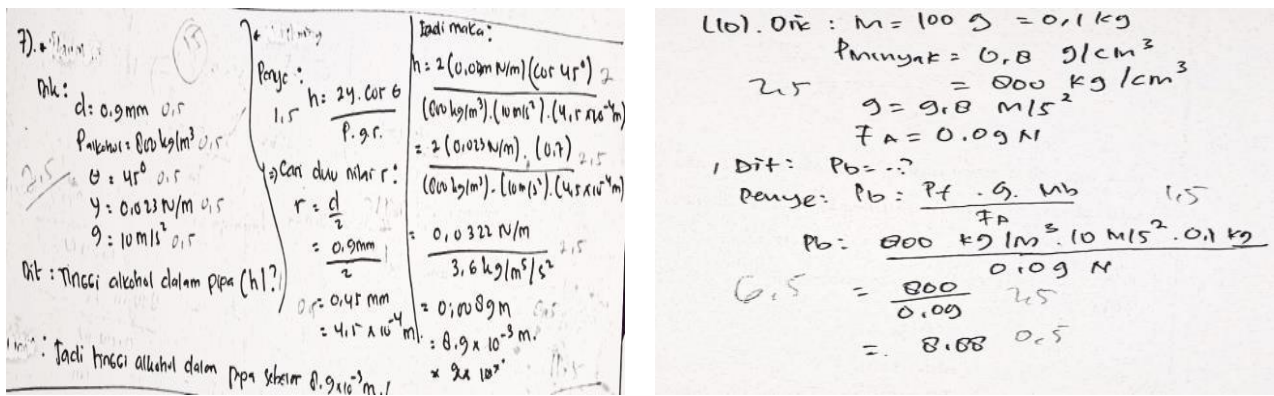 7).
Dik:
d: 0.9mm 0,5
ρalkohol: 800 kg/m³ 0,5
θ: 45° 0,5
γ: 0,023 N/m 0,5
g: 10 m/s² 0,5
2,5
Dit: Tinggi alkohol dalam pipa (h)?
: Jadi tinggi alkohol dalam pipa sebesar 8.9x10⁻³m.
15
Penye:
1.5
h: 2γ. cos θ
ρ.g.r.
=> Cari dulu nilai r:
r = d
2
= 0,9mm
2
0,5
= 0,45 mm
= 4,5 x 10⁻⁴ m
Jadi maka:
h: 2 (0,023 N/m) (cos 45°) 2
(800 kg/m³). (10m/s²). (4,5 x10⁻⁴m)
= 2 (0,023 N/m). (0.7) 2,5
(800 kg/m³). (10m/s²). (4,5x10⁻⁴m)
= 0,0322 N/m
3,6 kg/m⁵/s² 2,5
= 0,0089m
= 8.9 x 10⁻³ m.
(10). Dik : M = 100 g = 0,1 kg
ρminyak = 0,8 g/cm³
2,5
= 800 kg/cm³
g = 9,8 m/s²
FA = 0.09 N
1 Dit: Pb = ..?
Penye: Pb = Pf . g. Mb 1,5
FA
Pb = 800 kg/m³. 10 m/s². 0,1 kg
0,09 N
6.5
= 800 2,5
0,09
= 8,88 0,5